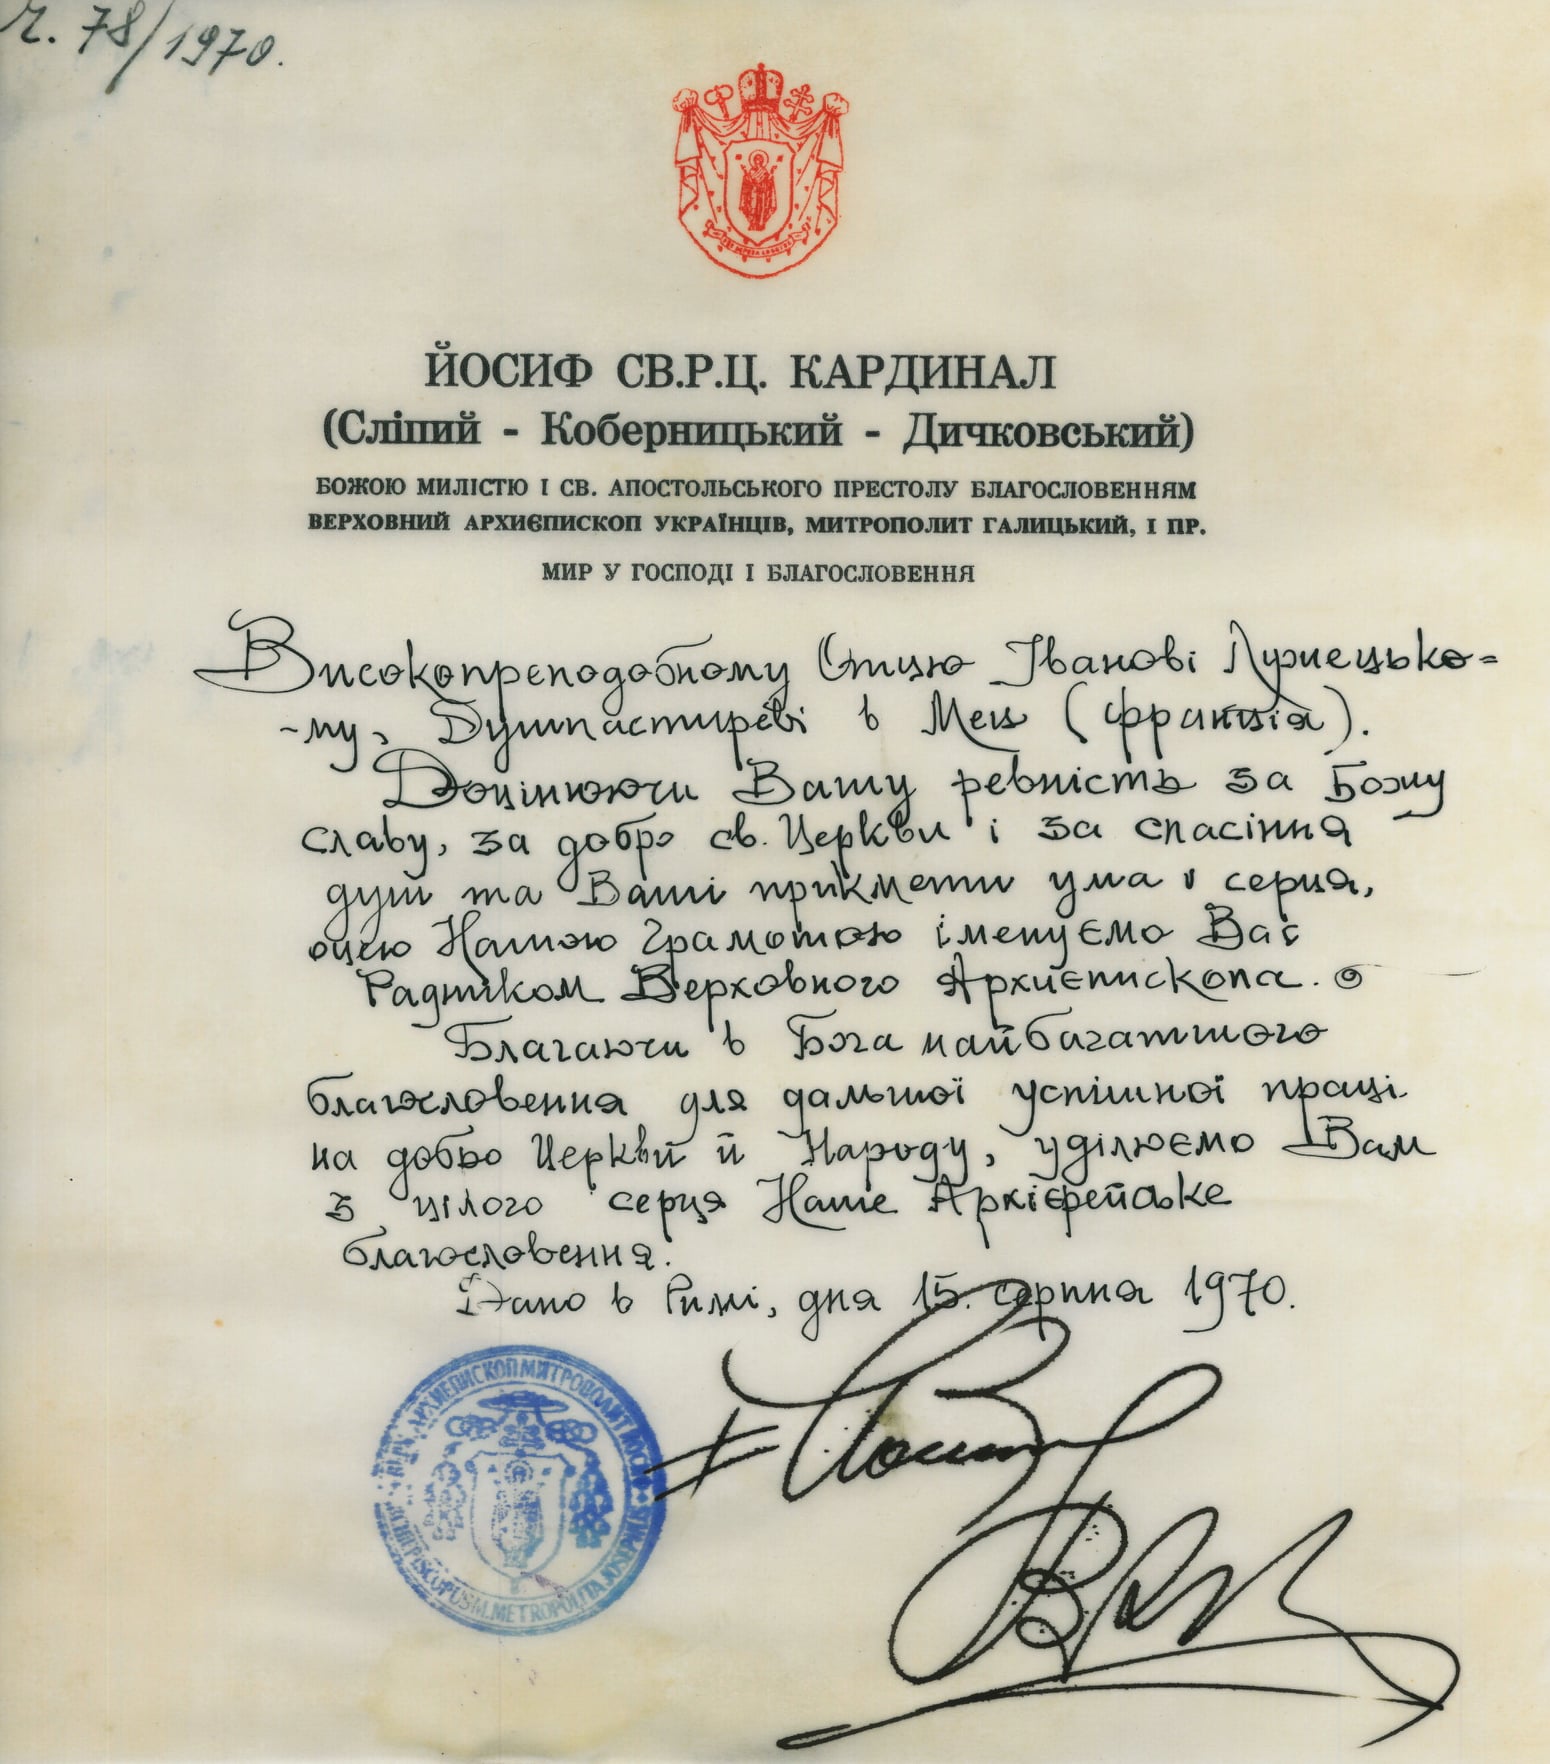 Ч. 78/1970.
ЙОСИФ СВ.Р.Ц. КАРДИНАЛ
(Сліпий - Коберницький - Дичковський)
БОЖОЮ МИЛІСТЮ І СВ. АПОСТОЛЬСЬКОГО ПРЕСТОЛУ БЛАГОСЛОВЕННЯМ
ВЕРХОВНИЙ АРХИЄПИСКОП УКРАЇНЦІВ, МИТРОПОЛИТ ГАЛИЦЬКИЙ, І ПР.
МИР У ГОСПОДІ І БЛАГОСЛОВЕННЯ
Високопреподобному Отцю Іванові Лужецько=
-му, Душпастиреві в Мец (Франція).
Доцінюючи Вашу ревність за Божу
славу, за добро св. Церкви і за спасіння
душ та Ваші прикмети ума і серця,
оцею Нашою Грамотою іменуємо Вас
Радником Верховного Архиєпископа.
Благаючи в Бога найбагатшого
благословення для дальшої успішної праці
на добро Церкви й Народу, уділюємо Вам
з цілого серця Наше Архієрейське
благословення.
Дано в Римі, дня 15. серпня 1970.
АРХИЕПИСКОП МИТРОПОЛИТ ЙОСИФ
ARCHIEPISCOPUS M. METROPOLITA JOSEPH